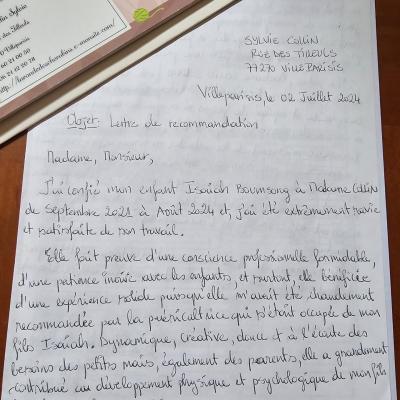 Sylvie
des Tilleuls
Villeparisis
SYLVIE COLLIN
RUE DES TILLEULS
77270 VILLEPARISIS
Villeparisis, le 02 Juillet 2024
Objet: Lettre de recommandation
Madame, Monsieur,
J'ai confié mon enfant Isaïah Boumsong à Madame Collin
de Septembre 2021 à Août 2024 et j'ai été extrêmement ravie
et satisfaite de son travail.
Elle fait preuve d'une conscience professionnelle formidable,
d'une patience inouïe avec les enfants, et surtout, elle bénéficie
d'une expérience solide puisqu'elle m'avait été chaudement
recommandée par la puéricultrice qui s'était occupée de mon
fils Isaïah. Dynamique, créative, douce et à l'écoute des
besoins des petits mais, également des parents, elle a grandement
contribué au développement physique et psychologique de mon fils